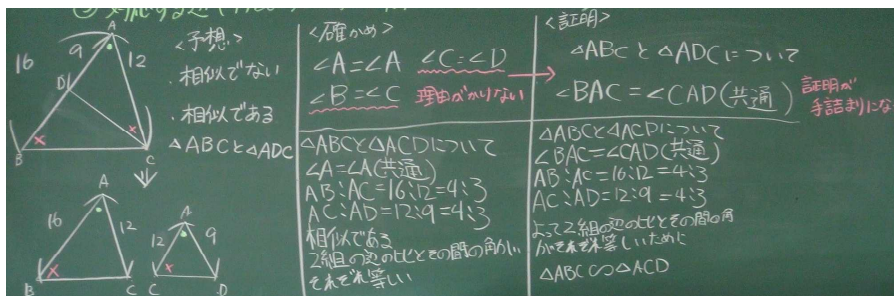 A
16
9
12
D
B
C
A
16
12
B
C
A
12
9
C
D
<予想>
・相似でない
・相似である
△ABCと△ADC
<確かめ>
∠A=∠A ∠C=∠D
∠B=∠C 理由がかりない
△ABCと△ACDについて
∠A=∠A(共通)
AB:AC=16:12=4:3
AC:AD=12:9=4:3
相似である
2組の辺の比とその間の角がい
それぞれ等しい
<証明>
△ABCと△ADCについて
∠BAC=∠CAD(共通)
証明が
手詰まりにな
△ABCと△ACDについて
∠BAC=∠CAD(共通)
AB:AC=16:12=4:3
AC:AD=12:9=4:3
よって2組の辺の比とその間の角
がそれぞれ等しいために
△ABC∽△ACD